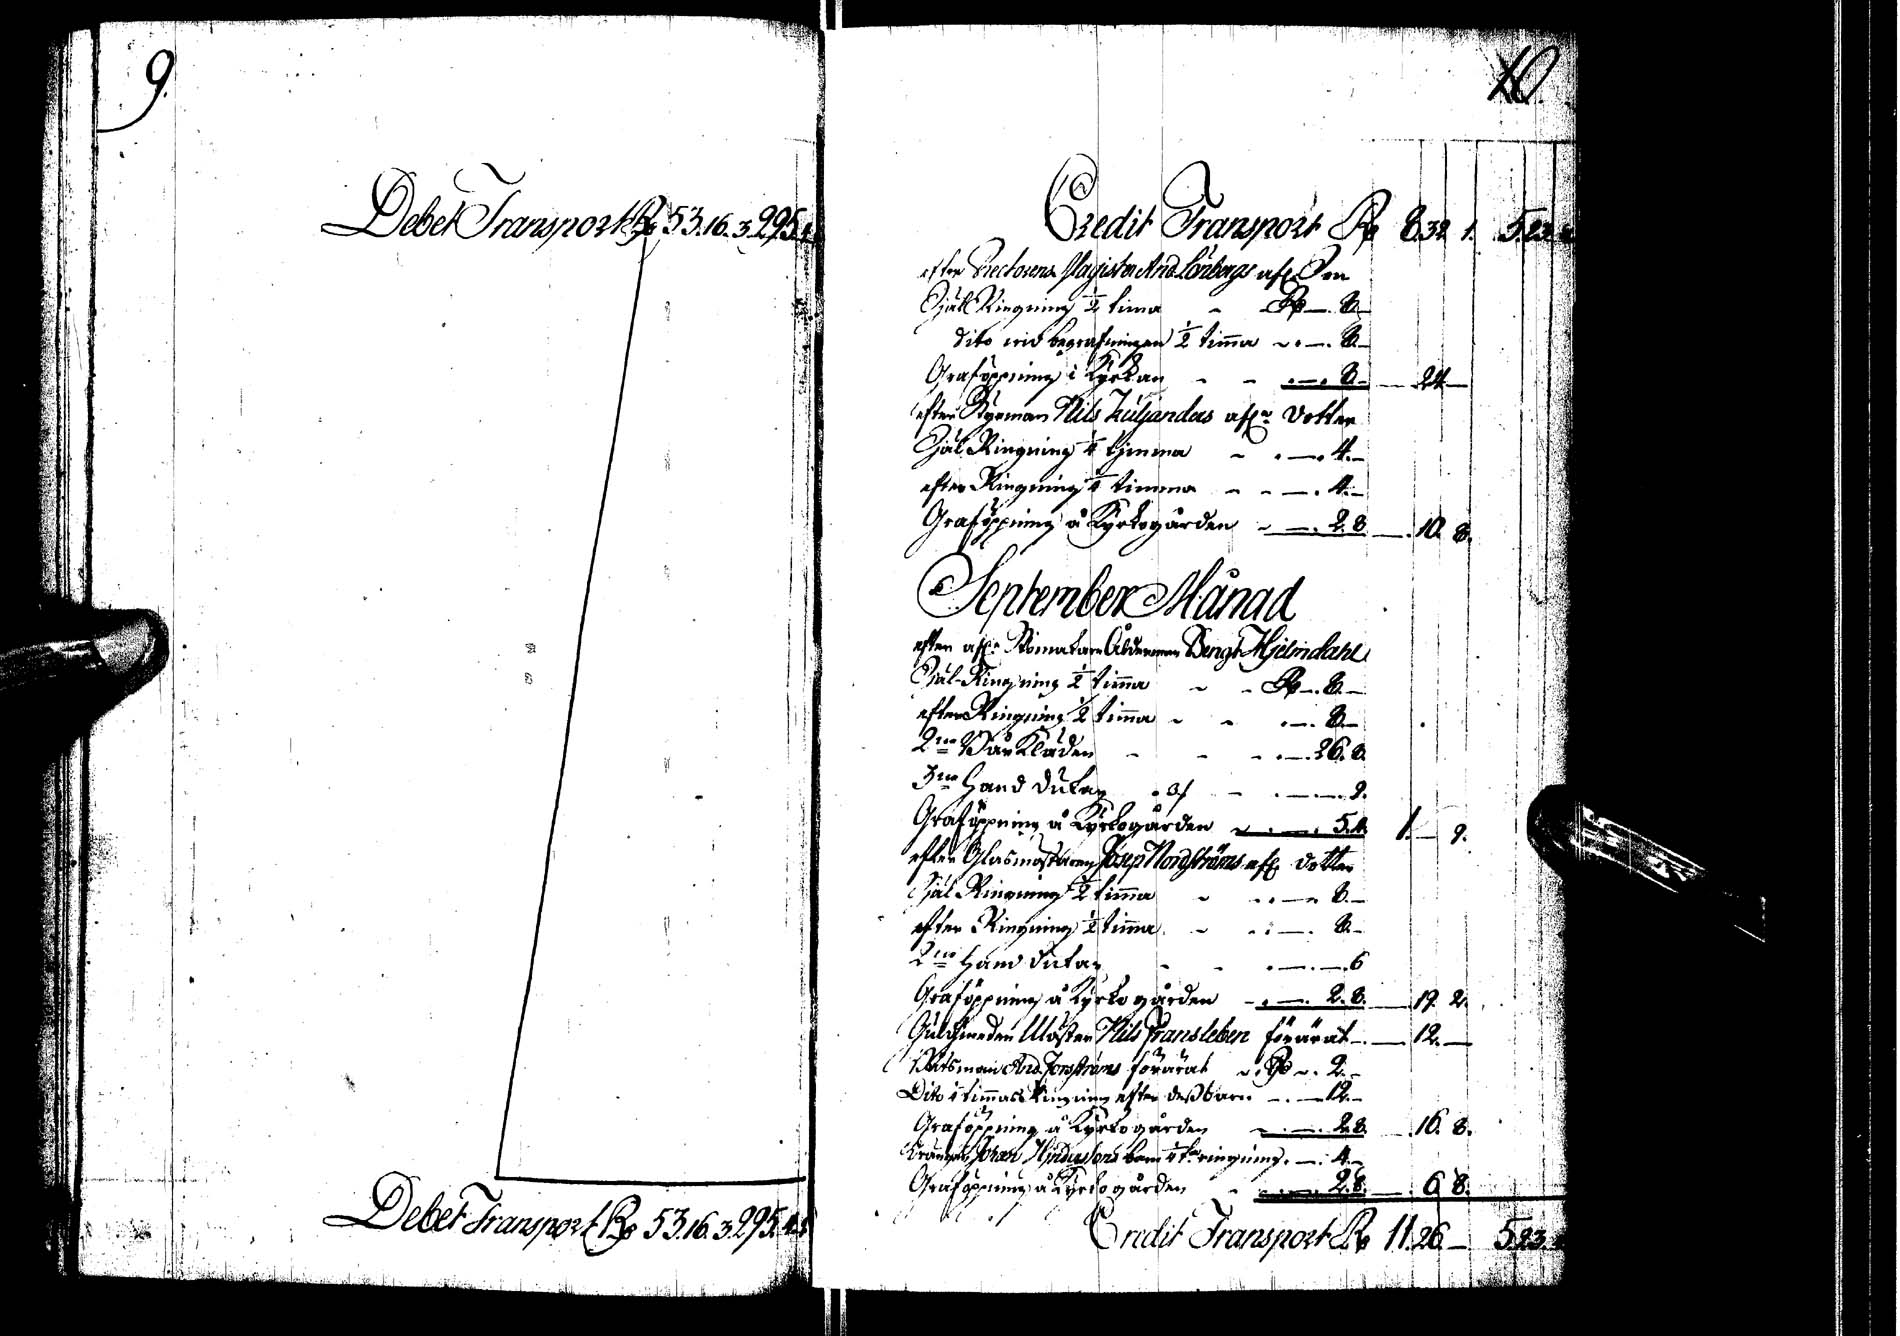 9.
Debet Transport Rd 53.16.3. 995.4
Debet Transport Rd 53.16.3. 995.4
10
Credit Transport Rd 8.32 1. 5.23
efter Rectorens Magister And. Lönbergs afl. Son
Själ Ringning 1/2 tima - Rd - 8. -
dito wid begrafningen 1/2 timma - 8. -
Graföppning i Kyrkan - 8. - 24 -
efter Styrman Nils afl. dotter
Själ Ringning 1/4 timma - 4. -
efter Ringning 1/4 timma - 4. -
Graföppning å Kyrkogården - 2. 8. - 10. 8.
September Månad
efter afl. Åldermannen Bengt Hjelmdahl
Själ-Ringning 1/2 timma - Rd - 8. -
efter Ringning 1/2 timma - 8. -
2ne Bår Kläden - 26. 8.
3ne Hand dukar - 9.
Graföppning å Kyrkogården - 5. 4. 1. - 9.
efter Glasmästaren Josep Nordströms afl. dotter
Själ Ringning 1/2 timma - 8. -
efter Ringning 1/2 timma - 8. -
2ne Hand dukar - 6
Graföppning å Kyrkogården - 2. 8. - 19. 2.
Guldsmeden Mäster Nils Fransleben förärat - 12. -
Båtsman And. Forsströms förärat - Rd - 2. -
Dito 1 timmas Ringning efter dess barn - 12. -
Graföppning å Kyrkogården - 2. 8. - 16. 8.
Johan barn ringning - 4. -
Graföppning å Kyrkogården - 2. 8. - 6 8.
Credit Transport Rd 11.26 - 5.23.